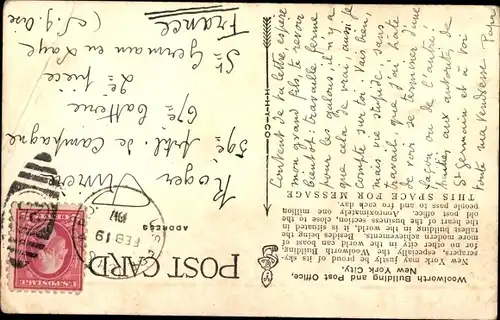 Woolworth Building and Post Office,
New York City.
New York may justly be proud of its sky
scrapers, especially the Woolworth Building
for no other city in the world can boast of
modern achievements. Besides being the
tallest building in the world, it is situated in
the heart of the business section, close to the
old post office. Approximately one million
people pass to and fro each day.
THIS SPACE FOR MESSAGE
Content de ta lettre, espère
mon grand fils, te revoir
bientôt: travaille ferme
pour les galons: il n'y a
que cela de vrai, aussi je
compte sur toi. Vais bien,
mais vie stupide sans
travail que j'ai hâte
de voir se terminer d'une
façon ou de l'autre.
aux autorités de
St Germain et à toi
toute ma tendresse Papa
POST CARD
ADDRESS
FEB 19
U.S. POSTAGE
Roger
59e Artil. de Campagne
67e Batterie
2e pièce
St Germain en Laye
(S. & Oise)
France
C.T.-HIGH-CO